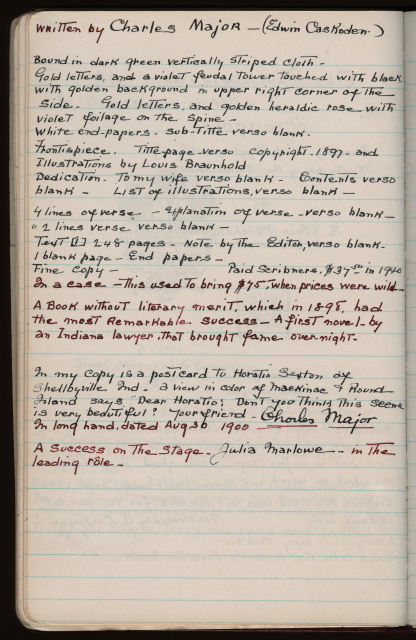 written by Charles Major - (Edwin Caskoden.)
Bound in dark green vertically striped cloth -
Gold letters, and a violet feudal tower touched with black
with golden background in upper right corner of the
side. Gold letters, and golden heraldic rose with
violet foilage on the spine -
White end-papers. Sub-title verso blank.
Frontispiece. Title-page verso copyright. 1897. and
Illustrations by Louis Braunhold
Dedication. To my wife verso blank - Contents verso
blank - List of illustrations, verso blank -
4 lines of verse - Explanation of verse - verso blank -
" 2 lines verse verso blank -
Text [1] 248 pages - Note by the Editor, verso blank.
1 blank page - End papers -
Fine copy - Paid Scribners. $37.50 in 1940
In a case - This used to bring $75, when prices were wild -
A Book without literary merit, which in 1898, had
the most Remarkable success - A first novel - by
an Indiana lawyer, that brought fame over-night.
In my copy is a postcard to Horatio Sexton of
Shelbyville Ind. - a view in color of Mackinac & Round
Island says "Dear Horatio: Don't you think this scene
is very beautiful? Your friend - Charles Major
In long hand, dated Aug 30 1900
A Success on the Stage. Julia Marlowe - in the
leading rôle -